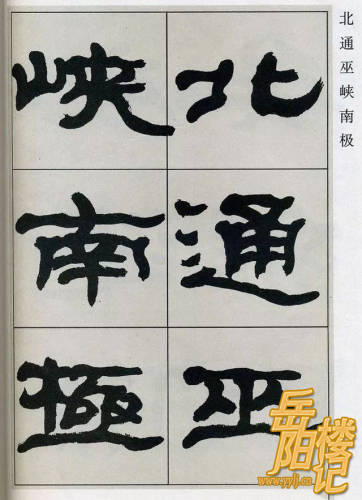 北通巫峡南极
北通巫
峡南極
岳阳楼记
www.yylj.cn